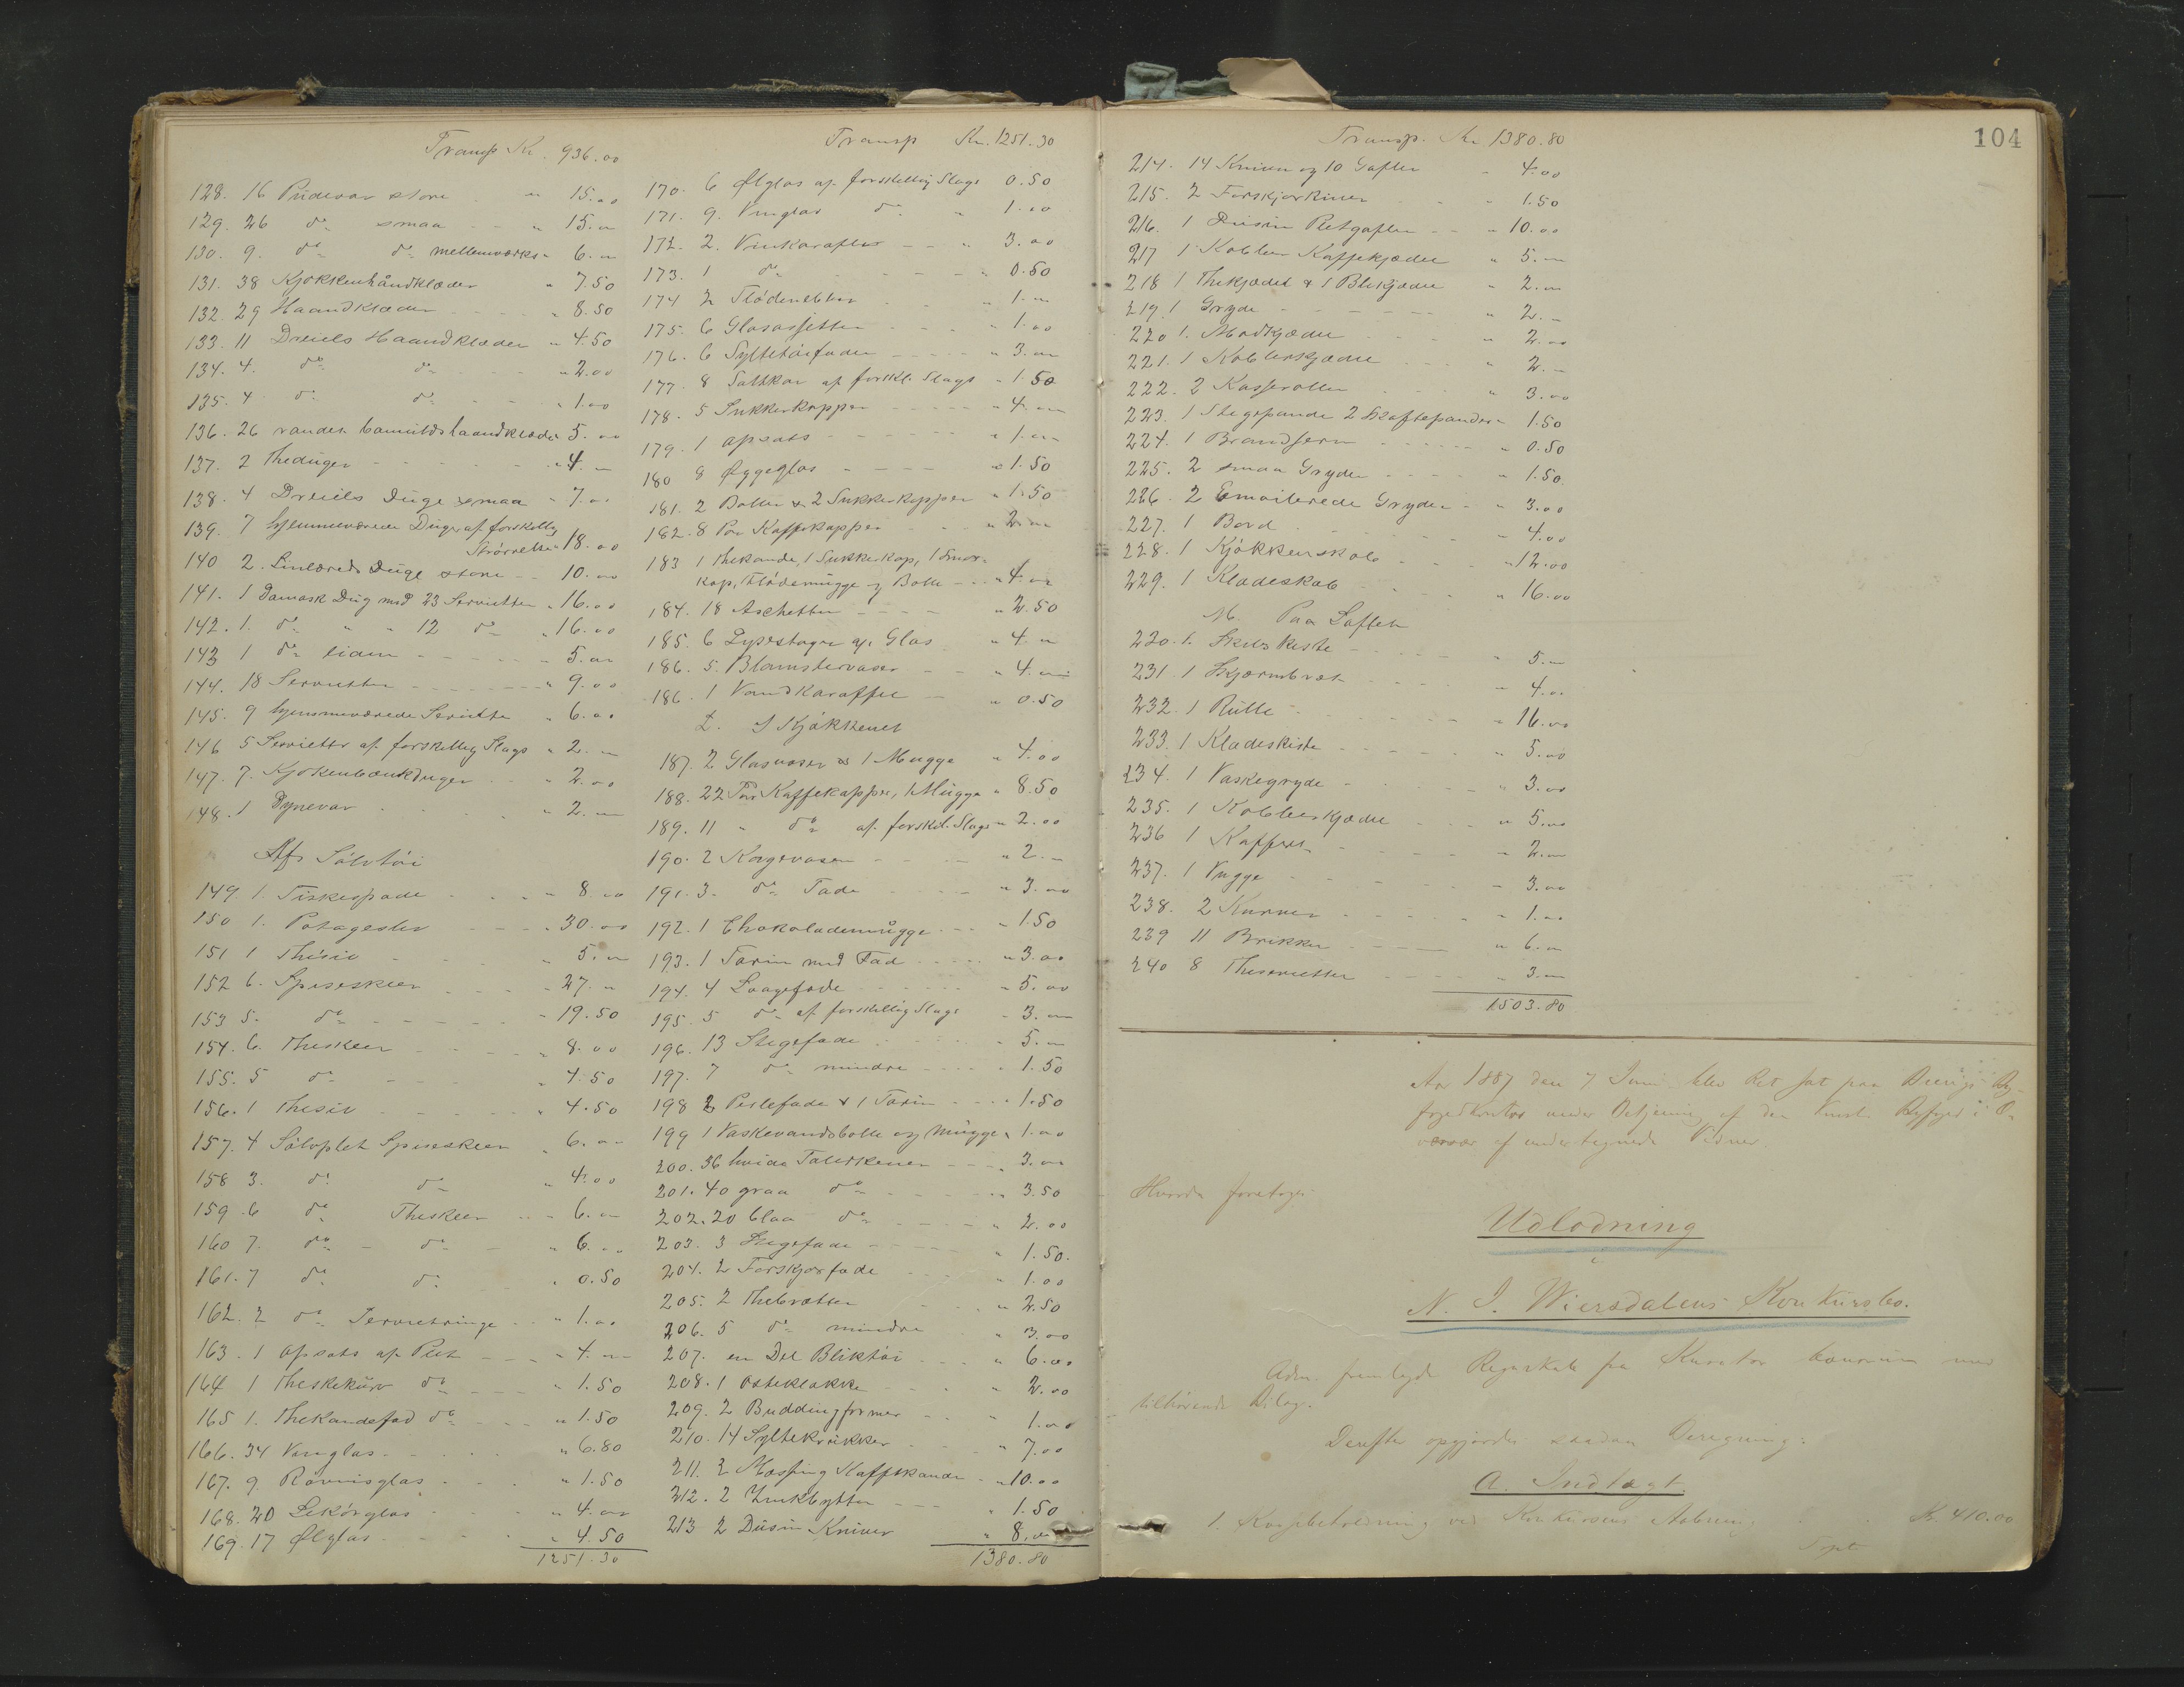 Transp Kr. 936.00
128. 16 Pudevar store " 15.00
129. 26 do smaa " 15.00
130. 9. do do mellemværks " 6.00
131. 38 Kjøkkenhåndklæder " 7.50
132. 29 Haandklæder " 8.50
133. 11 Dreiels Haandklæder " 4.50
134. 4. do do " 2.00
135. 4 do do " 1.00
136. 26 randet bomulds haandklæder 5.00
137. 2 Theduger " 4.00
138. 4 Dreiels Duge smaa " 7.00
139. 7 hjemmevævede Duge af forskellig
Størrelse " 18.00
140 2. Linlæreds Duge store 10.00
141. 1 Damask Dug med 23 Servietter " 16.00
142. 1. do " " 12 do " 16.00
143 1 do liden 5.00
144. 18 Servietter " 9.00
145. 9 hjemmevævede Servietter " 6.00
146 5 Servietter af forskellig Slags " 2.00
147. 7. Kjøkenbænkduger 2.00
148. 1 Dynevar " 2.00
Af Sølvtøi
149. 1. Fiskespade " 8.00
150 1. Potageslev " 30.00
151 1 Thesiv " 5.00
152 6. Spiseskeer " 27.00
153 5. do " 19.50
154. 6. Theskeer " 8.00
155. 5 do " 4.50
156. 1 Thesiv " 4.50
157. 4 Sølvplet Spiseskeer " 6.00
158 3. do do " 4.00
159. 6 do Theskeer " 6.00
160 7. do do " 6.00
161. 7 do do " 0.50
162. 2 do Servietringe " 1.00
163. 1 Opsats af Plet " 4.00
164 1 Theskekurv do " 1.50
165 1. Thekandefad do " 1.50
166. 34 Vinglas " 6.80
167. 9. Rømmisglas " 1.50
168. 20 Likørglas " 4.00
169. 17 Ølglas " 4.50
1251.30
Transp Kr. 1251.30
170. 6 Ølglas af forskellig Slags 0.50
171. 9. Vinglas do " 1.00
172. 2. Vinkarafler " 3.00
173. 1 do " 0.50
174 2 Flødenebber " 1.00
175. 6 Glasassietter " 1.00
176. 6 Syltetøifader " 3.00
177. 8 Saltkar af forskl. Slags " 1.50
178. 5 Sukkerkopper " 4.00
179. 1 opsats " 1.00
180 8 Æggeglas " 1.50
181. 2 Boller & 2 Sukkerkopper " 1.50
182. 8 Par Kaffekopper " 2.00
183 1 Thekande, 1 Sukkerkop, 1 Smør-
kop, Flødemugge og Bolle " 4.00
184. 18 Aschetter " 2.50
185. 6 Lysestager af Glas " 4.00
186. 5. Blomstervaser " 4.00
186. 1 Vandkaraffel " 0.50
L. I Kjøkkenet
187. 2 Glasvaser & 1 Mugge " 4.00
188. 22 Par Kaffekopper, 1 Mugge " 8.50
189. 11 " do af forskel. Slags " 2.00
190. 2 Kagevaser " 2.00
191. 3. do Fade " 3.00
192. 1 Chokolademugge " 1.50
193. 1 Tarin med Fad " 3.00
194. 4 Laagefade " 5.00
195. 5 do af forskellig Slags 3.00
196. 13 Stegefade " 5.00
197. 7 do mindre " 1.50
198 2 Perlefade & 1 Tarin " 1.50
199 1 Vaskevandsbolle og Mugge " 1.00
200. 56 hvide Talerkener " 3.00
201. 40 graa do " 3.50
202. 20 blaa do " 2.00
203. 3 Stegefade " 1.50.
204. 2 Forskjærfade " 1.00
205. 2 Thebrætter " 2.50
206. 5 do mindre " 3.00
207. en Del Bliktøi " 6.00
208. 1 Osteklokke " 2.00
209. 2 Buddingformer " 1.00
210. 14 Syltekrukker " 7.00
211. 2 Messing Kaffekander " 10.00
212. 2 Zinkbytter " 1.50
213 2 Dusin Kniver " 8.00
1380.80
104
Transp. Kr 1380.80
214. 14 Kniver og 10 Gafler " 4.00
215. 2 Forskjærkniver " 1.50
216. 1 Dusin Pletgafler " 10.00
217 1 Kobber Kaffekjædel " 5.00
218 1 Thekjædel & 1 Blikjædel " 2.00
219. 1 Gryde " 2.—
220 1. Madkjædel " 2.00
221. 1 Kobberkjædel " 2.—
222. 2 Kasseroller " 3.00
223. 1 Stegepande 2 Haftepander " 1.50
224. 1 Brandjern " 0.50
225. 2 smaa Gryder " 1.50
226. 2 Emailerede Gryder " 3.00
227. 1 Bord " 4.00
228. 1 Kjøkkenskab " 12.00
229. 1 Klædeskab " 16.00
M. Paa Loftet
230. 1. Skibskiste " 5.—
231. 1 Skjærmbræt " 4.00
232. 1 Rulle " 16.00
233. 1 Klædeskiste " 5.00
234. 1 Vaskegryde " 3.00
235. 1 Kobberkjædel " 5.00
236 1 Kuffert " 2.00
237. 1 Vugge " 3.00
238. 2 Kurver " 1.00
239 11 Brikker " 6.00
240 8 Theservietter " 3.00
1503.80
Aar 1887 den 7 Juni blev Ret sat paa By-
fogedkontor under Betjening af den Byfoged i O-
vervær af undertegnede Vidner.
Hvorda foretoges
Udlodning
i
N. J. Wiersdalens Konkursbo.
Adm. fremlagde Regnskab fra Kurator med
tilhørende Bilag.
Derefter opgjordes saadan Beregning:
A. Indtægt.
1. Kassebeholdning ved Konkursens Aabning Kr. 410.00
Tpt.